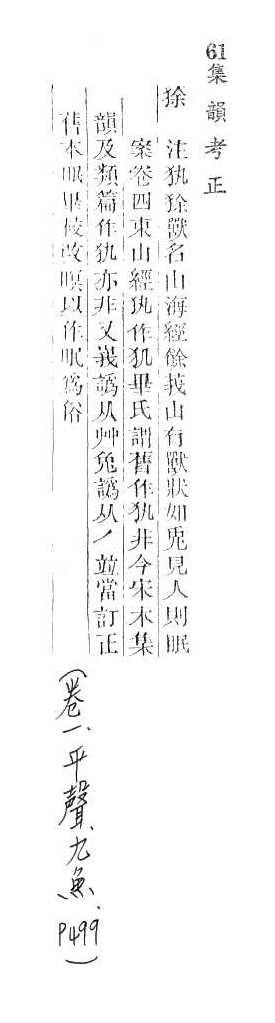 61集韻考正
狳　注犱狳獸名山海經餘莪山有獸狀如兎見人則眠
案卷四東山經犱作犰畢氏謂舊作犱非今宋本集
韻及類篇作犱亦非又峩譌从艸兔譌从丿竝當訂正
舊本眠畢校改瞑以作眠爲俗
(卷一、平聲、九魚、P499)